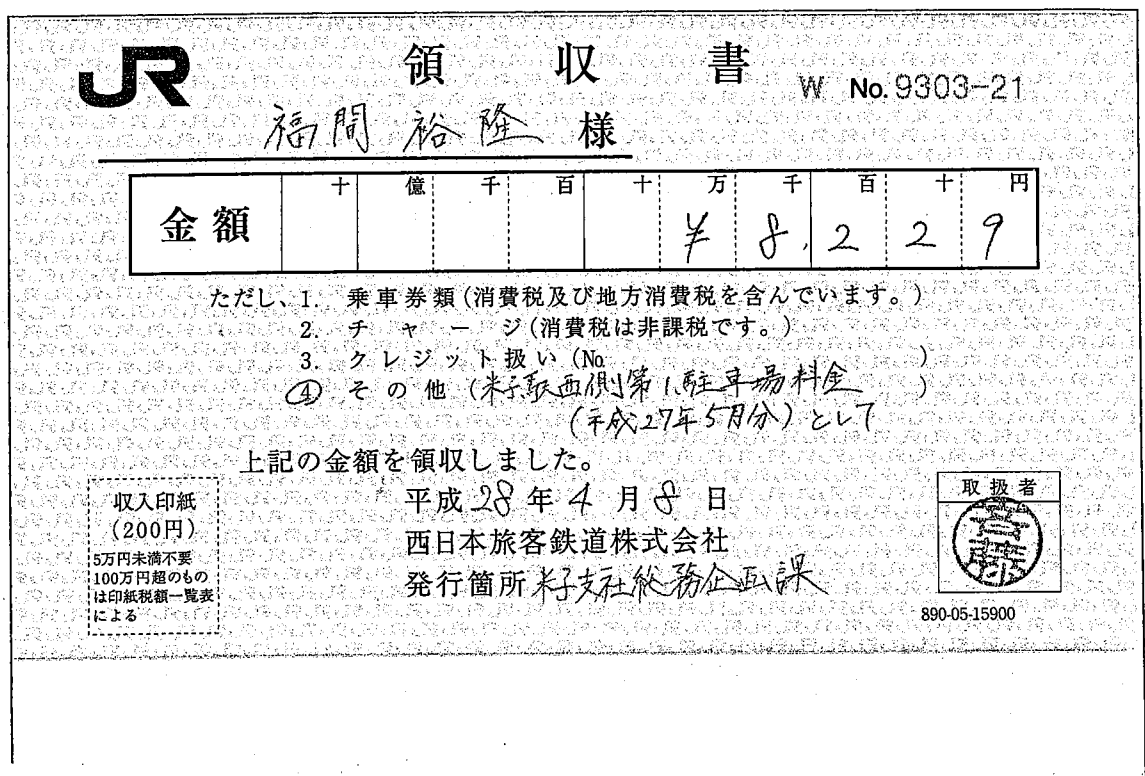 JR 領収書
W No.9303-21
福間 裕隆 様
金額 十 億 千 百 十 万 千 百 十 円
¥8,229
ただし、1. 乗車券類(消費税及び地方消費税を含んでいます。)
2. チャージ(消費税は非課税です。)
3. クレジット扱い(No. )
④ その他(米子駅西側第1駐車場料金)
(平成27年5月分)として
上記の金額を領収しました。
平成28年4月8日
西日本旅客鉄道株式会社
発行箇所 米子支社総務企画課
収入印紙
(200円)
5万円未満不要
100万円超のもの
は印紙税額一覧表
による
取扱者
斉藤
890-05-15900